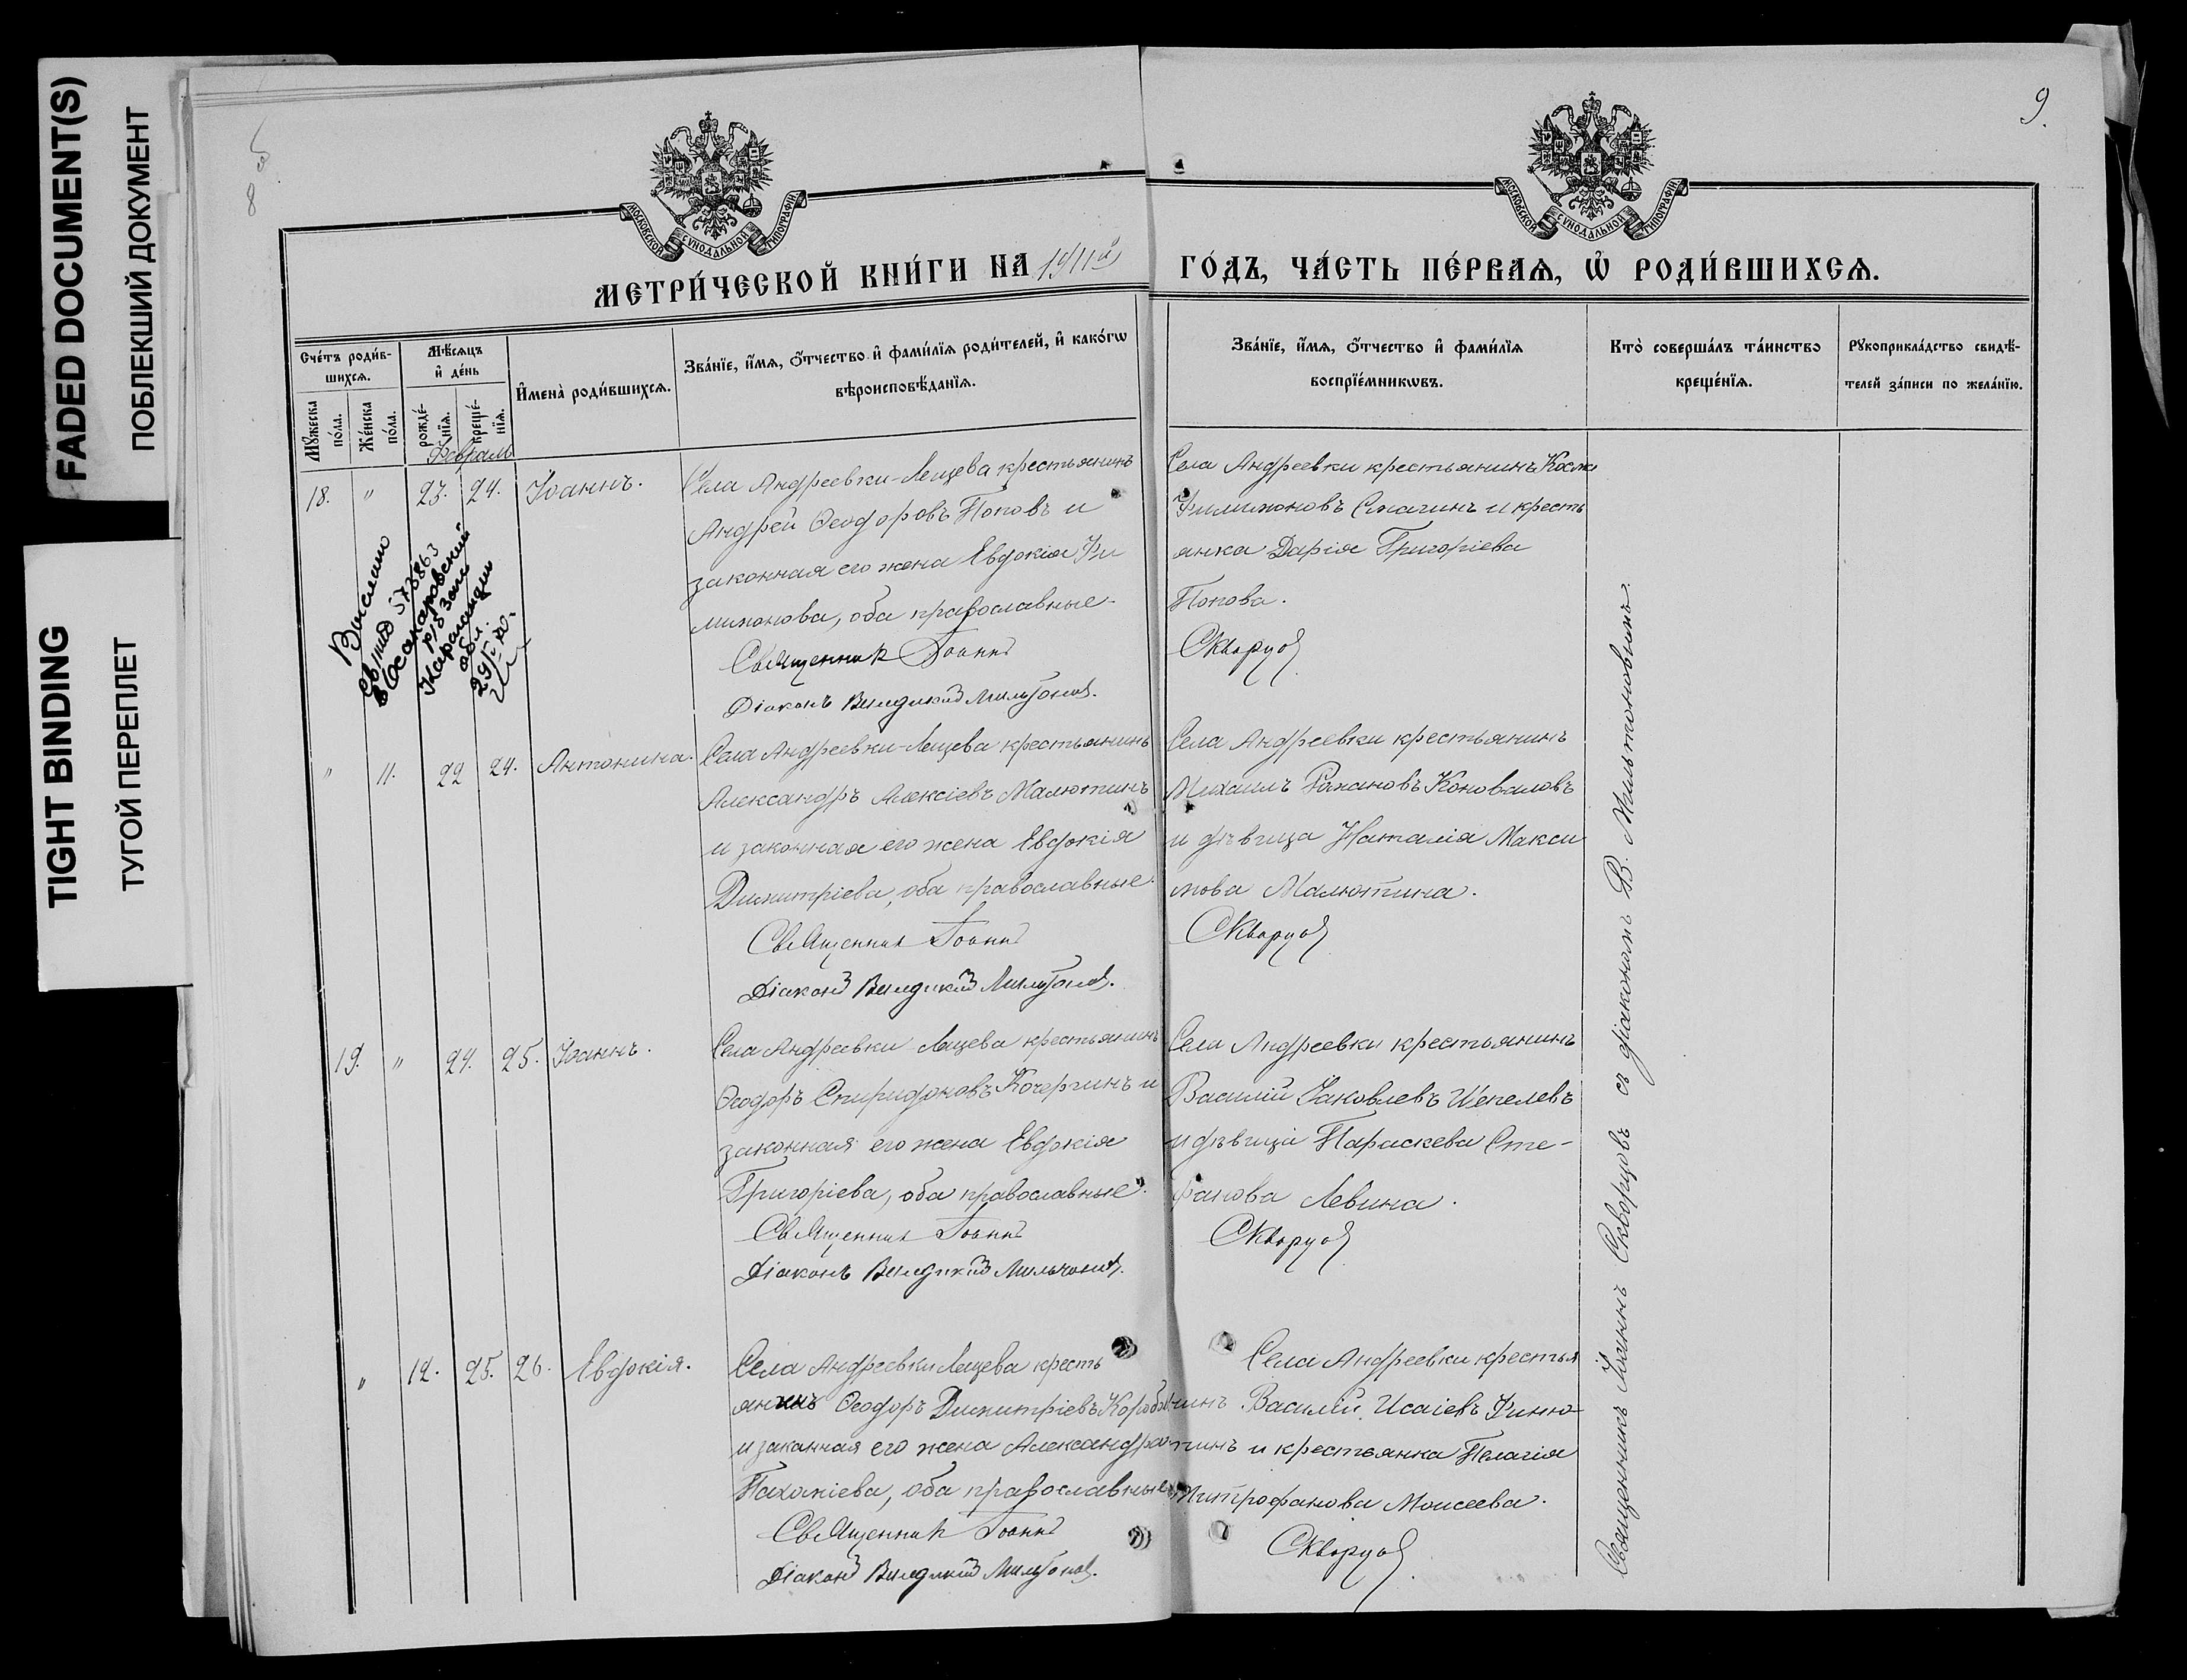 FADED DOCUMENT(S)
ПОБЛЕКШИЙ ДОКУМЕНТ
TIGHT BINDING
ТУГОЙ ПЕРЕПЛЕТ
8
9.
МОСКОВСКОЙ СУНОДАЛЬНОЙ ТИПОГРАФІИ
МОСКОВСКОЙ СУНОДАЛЬНОЙ ТИПОГРАФІИ
МЕТРИ́ЧЕСКОЙ КНИ́ГИ НА 1911й
ГО́ДЪ, ЧА́СТЬ ПЕ́РВАѦ, Ѡ҆ РОДИ́ВШИХСѦ.
Сче́тъ роди́в-
шихсѧ.
Мꙋ́жеска
по́ла.
Же́нска
по́ла.
Мѣ́сѧцъ
и҆ де́нь
рожде́-
нїѧ.
креще́-
нїѧ.
И҆мена̀ роди́вшихсѧ.
Зва́нїе, и҆́мѧ, ѻ҆́тчество и҆ фами́лїѧ роди́телей, и҆ како́гѡ
вѣроисповѣ́данїѧ.
Зва́нїе, и҆́мѧ, ѻ҆́тчество и҆ фами́лїѧ
воспрїе́мникѡвъ.
Кто̀ соверша́лъ та́инство
креще́нїѧ.
Рꙋкоприкла́дство свидѣ́-
телей за́писи по жела́нїю.
Февраль
18. " 23. 24. Іоаннъ.
Села Андреевки-Лещева крестьянинъ
Андрей Ѳеодоровъ Поповъ и
законная его жена Евдокія Фи
лимонова, оба православные.
Священник Іоаннъ
Діаконъ Венедиктъ Мильтонов.
Села Андреевки крестьянинъ Косма
Филимоновъ Спагинъ и кресть
янка Дарія Григоріева
Попова.
Скворцов
Выслано
свтво 573863
в Осакаровский
р/б Загс
Карагандин
обл.
" 11. 22 24. Антонина.
Села Андреевки-Лещева крестьянинъ
Александръ Алексіевъ Малютинъ
и законная его жена Евдокія
Димитріева, оба православные.
Священник Іоаннъ
Діаконъ Венедиктъ Мильтонов.
Села Андреевки крестьянинъ
Михаилъ Романовъ Коноваловъ
и дѣвица Наталія Макси
мова Малютина.
Скворцов
19. " 24. 25. Іоаннъ.
Села Андреевки Лещева крестьянинъ
Ѳеодоръ Спиридоновъ Кочергинъ и
законная его жена Евдокія
Григоріева, оба православные.
Священник Іоаннъ
Діаконъ Венедиктъ Мильтонов.
Села Андреевки крестьянинъ
Василій Іаковлевъ Шепелевъ
и дѣвица Параскева Сте-
фанова Левина.
Скворцов
" 12. 25. 26. Евдокія.
Села Андреевки Лещева кресть
янинъ Ѳеодоръ Димитріевъ
и законная его жена Александра
Пахоміева, оба православные
Священник Іоаннъ
Діаконъ Венедиктъ Мильтонов.
Села Андреевки крестья
нинъ Василій Исаіевъ Финю-
тинъ и крестьянка Пелагія
Митрофанова Моисеева.
Скворцов
Священникъ Іоаннъ Скворцовъ съ діакономъ В. Мильтоновымъ.